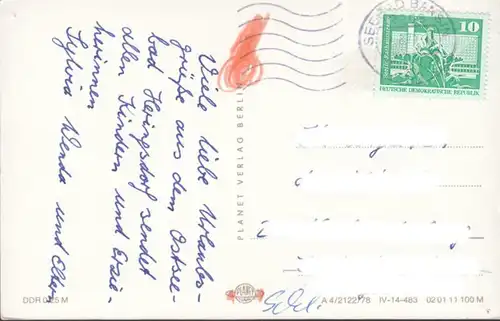 Viele liebe Urlaubs-
grüße aus dem Ostsee-
bad Heringsdorf sendet
allen Kindern und Erzie-
herinnen
Sylvia Wenda und Eltern
PLANET VERLAG BERLIN
SEEBAD BANSIN
10
DEUTSCHE DEMOKRATISCHE REPUBLIK
DDR 0,25 M
PLANET
A 4/2122/78 IV-14-483 02 01 11 100 M